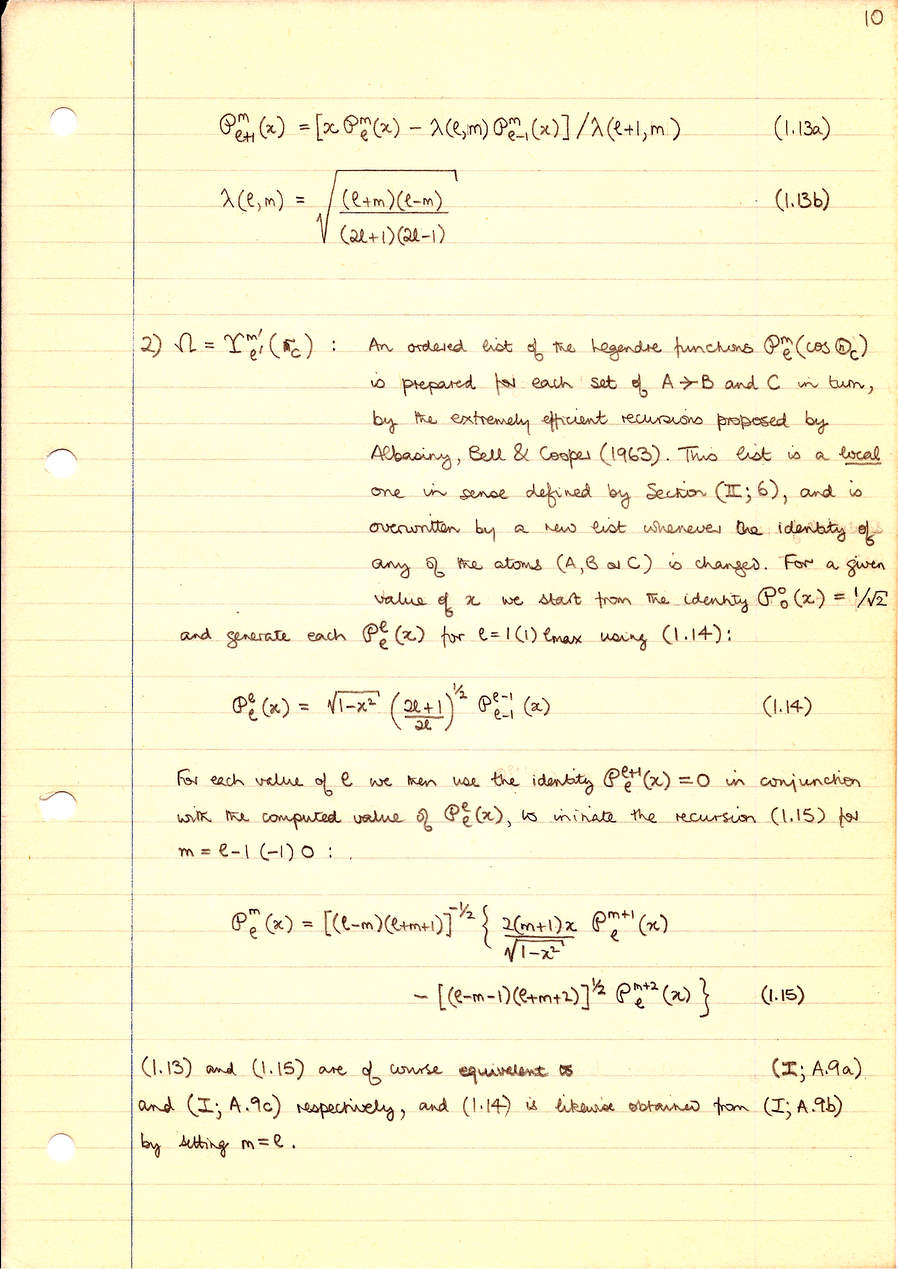 10
𝒫ᵐₗ₊₁(x) = [x 𝒫ᵐₗ(x) − λ(ℓ,m) 𝒫ᵐₗ₋₁(x)] / λ(ℓ+1, m) (1.13a)
λ(ℓ,m) = √((ℓ+m)(ℓ−m) / (2ℓ+1)(2ℓ−1)) (1.13b)
2) Ω = Υ_{ℓ'}^{m'}(r_c) : An ordered list of the Legendre functions 𝒫_ℓ^m(cos Θ_c)
is prepared for each set of A→B and C in turn,
by the extremely efficient recursions proposed by
Albasiny, Bell & Cooper (1963). This list is a local
one in sense defined by Section (II; 6), and is
overwritten by a new list whenever the identity of
any of the atoms (A, B or C) is changed. For a given
value of x we start from the identity 𝒫_0^0(x) = 1/√2
and generate each 𝒫_ℓ^ℓ(x) for ℓ = 1(1) ℓmax using (1.14):
𝒫_ℓ^ℓ(x) = √(1−x²) ((2ℓ+1)/2ℓ)^{1/2} 𝒫_{ℓ−1}^{ℓ−1}(x) (1.14)
For each value of ℓ we then use the identity 𝒫_ℓ^{ℓ+1}(x) = 0 in conjunction
with the computed value of 𝒫_ℓ^ℓ(x), to initiate the recursion (1.15) for
m = ℓ−1 (−1) 0 :
𝒫_ℓ^m(x) = [(ℓ−m)(ℓ+m+1)]^{−1/2} { 2(m+1)x / √(1−x²) 𝒫_ℓ^{m+1}(x)
− [(ℓ−m−1)(ℓ+m+2)]^{1/2} 𝒫_ℓ^{m+2}(x) } (1.15)
(1.13) and (1.15) are of course equivalent to (I; A.9a)
and (I; A.9c) respectively, and (1.14) is likewise obtained from (I; A.9b)
by setting m = ℓ.